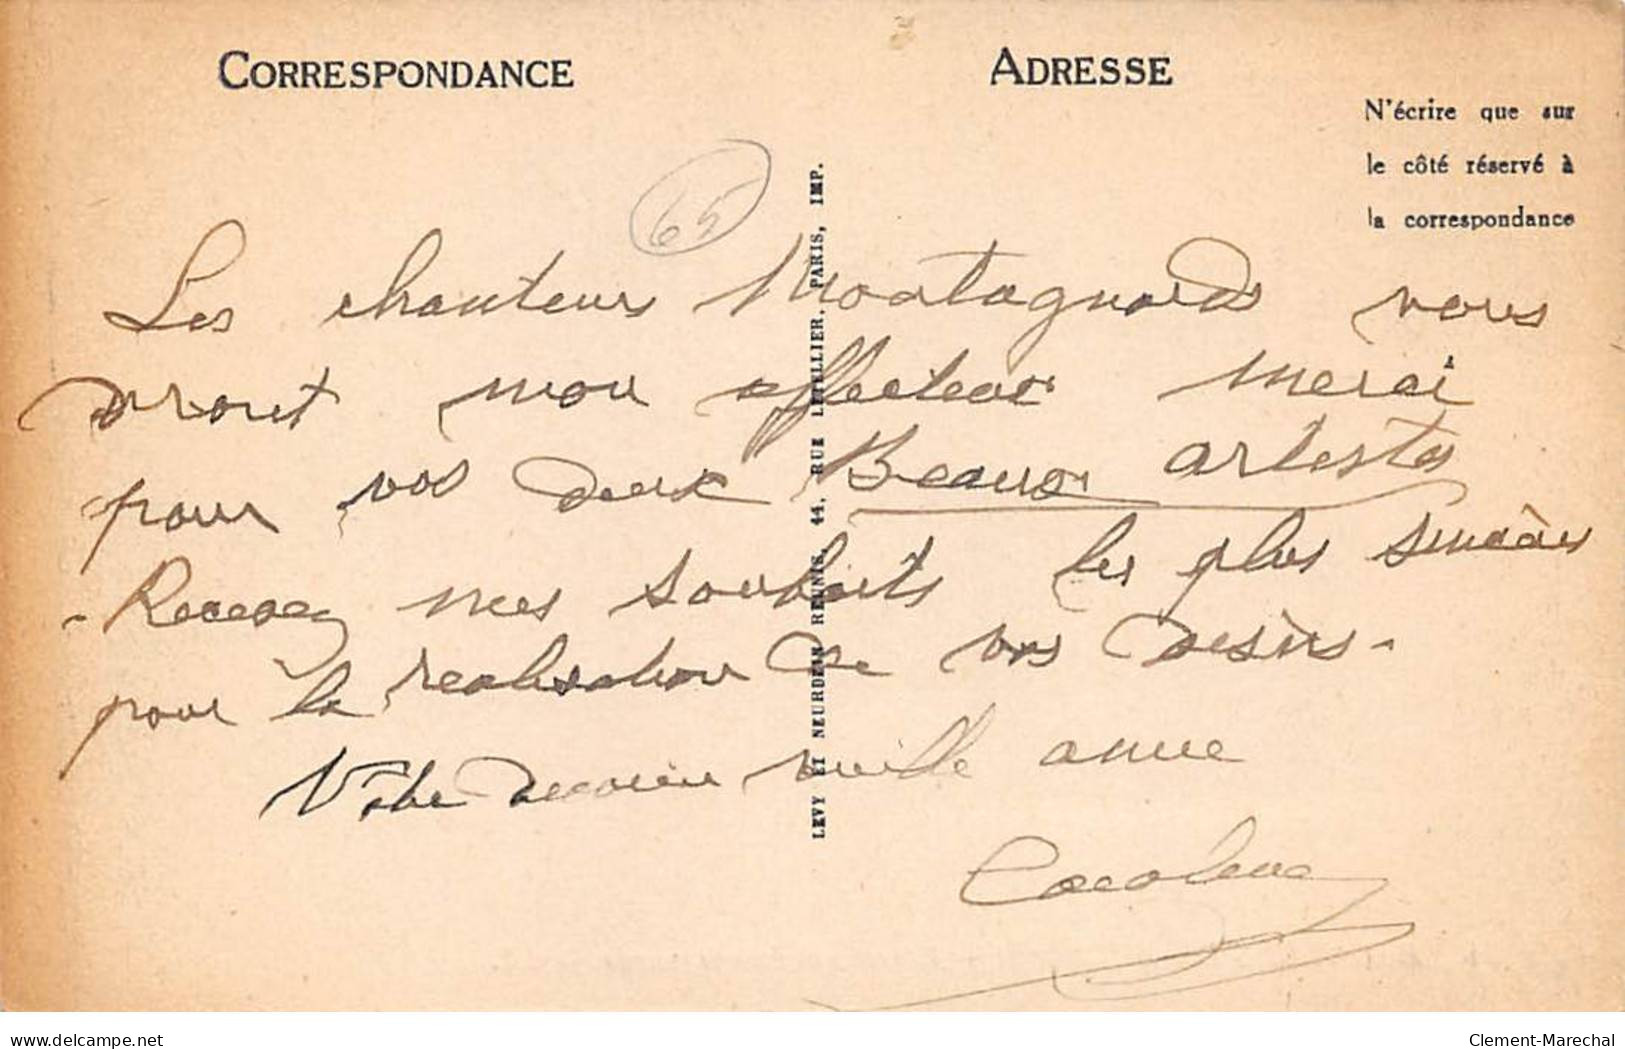 CORRESPONDANCE
ADRESSE
N'écrire que sur
le côté réservé à
la correspondance
65
LEVY ET NEURDEIN REUNIS, 44, RUE LETELLIER, PARIS, IMP.
Les chanteurs Montagnards vous
diront mon affectueux merci
pour vos deux Beaux artistes
- Recevez mes souhaits les plus sincères
pour la realisation de vos desirs -
Votre mille
delcampe.net
Clement-Marechal